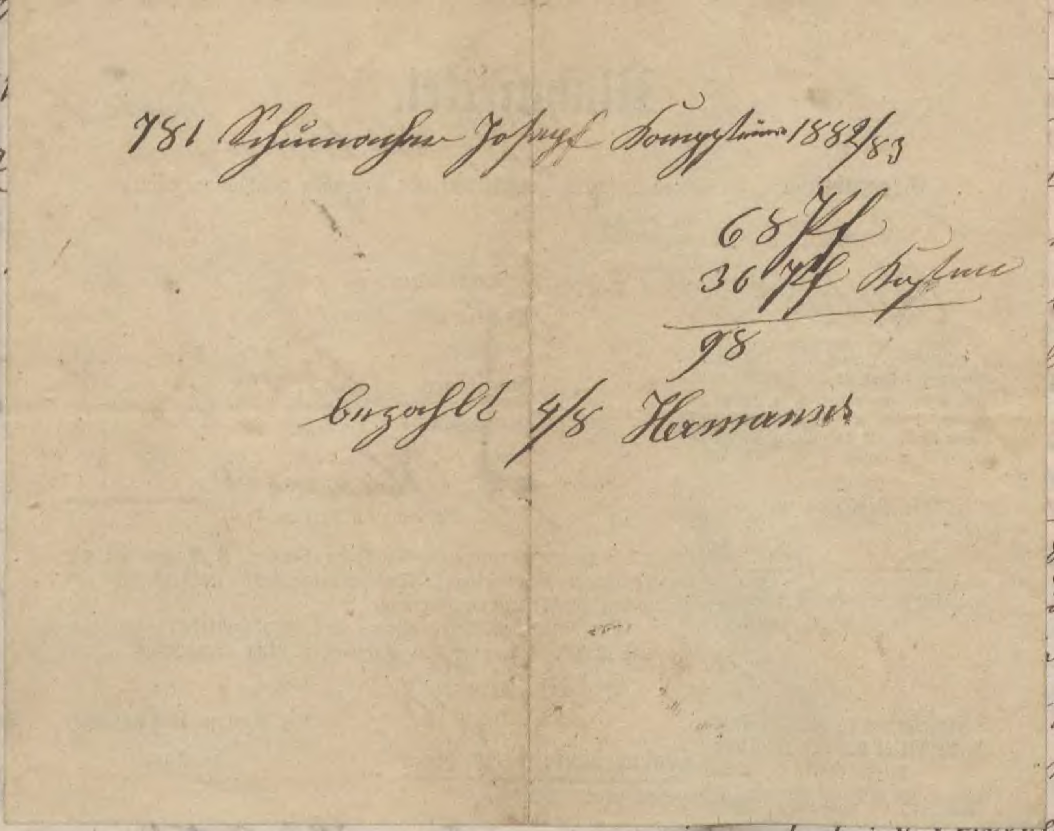 781 Schumacher Joseph 1882/83
68 Pf
30 Pf Kosten
98
bezahlt 4/8 Hermanns